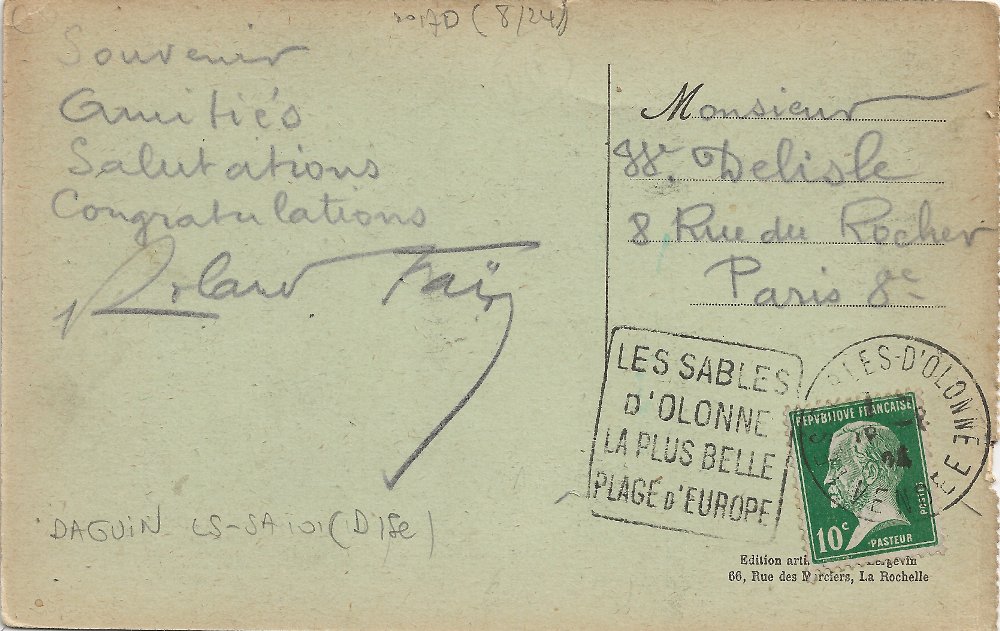 (8/24)
Souvenir
Amitiés
Salutations
Congratulations
Roland
Monsieur
Delisle
8 Rue du Rocher
Paris 8e
LES SABLES
D'OLONNE
LA PLUS BELLE
PLAGE D'EUROPE
BLES-D'OLONNE
VEN EE
REPVBLIQVE FRANÇAISE
POSTES
10c
PASTEUR
DAGUIN LS-SA101 (D15e)
Edition arti
66, Rue des Merciers, La Rochelle